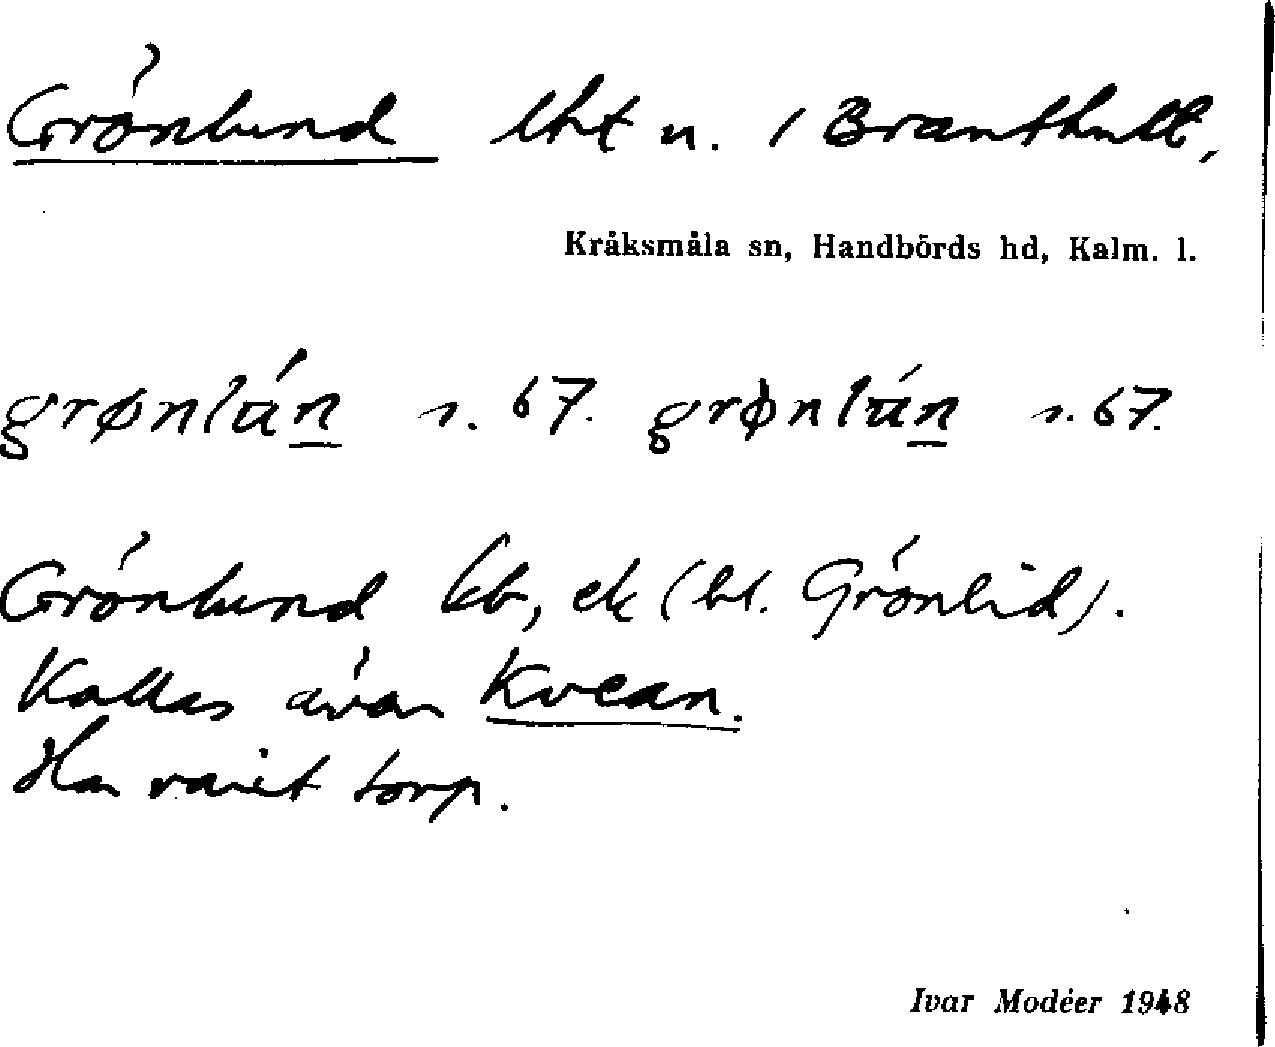 Grönlund lht u. / Branthult,
Kråksmåla sn, Handbörds hd, Kalm. l.
grønlún s. 67. grønlún s. 67.
Grönlund kb, ek (bl. Grönlid).
Kallas även Kvean.
Har varit torp.
Ivar Modéer 1948